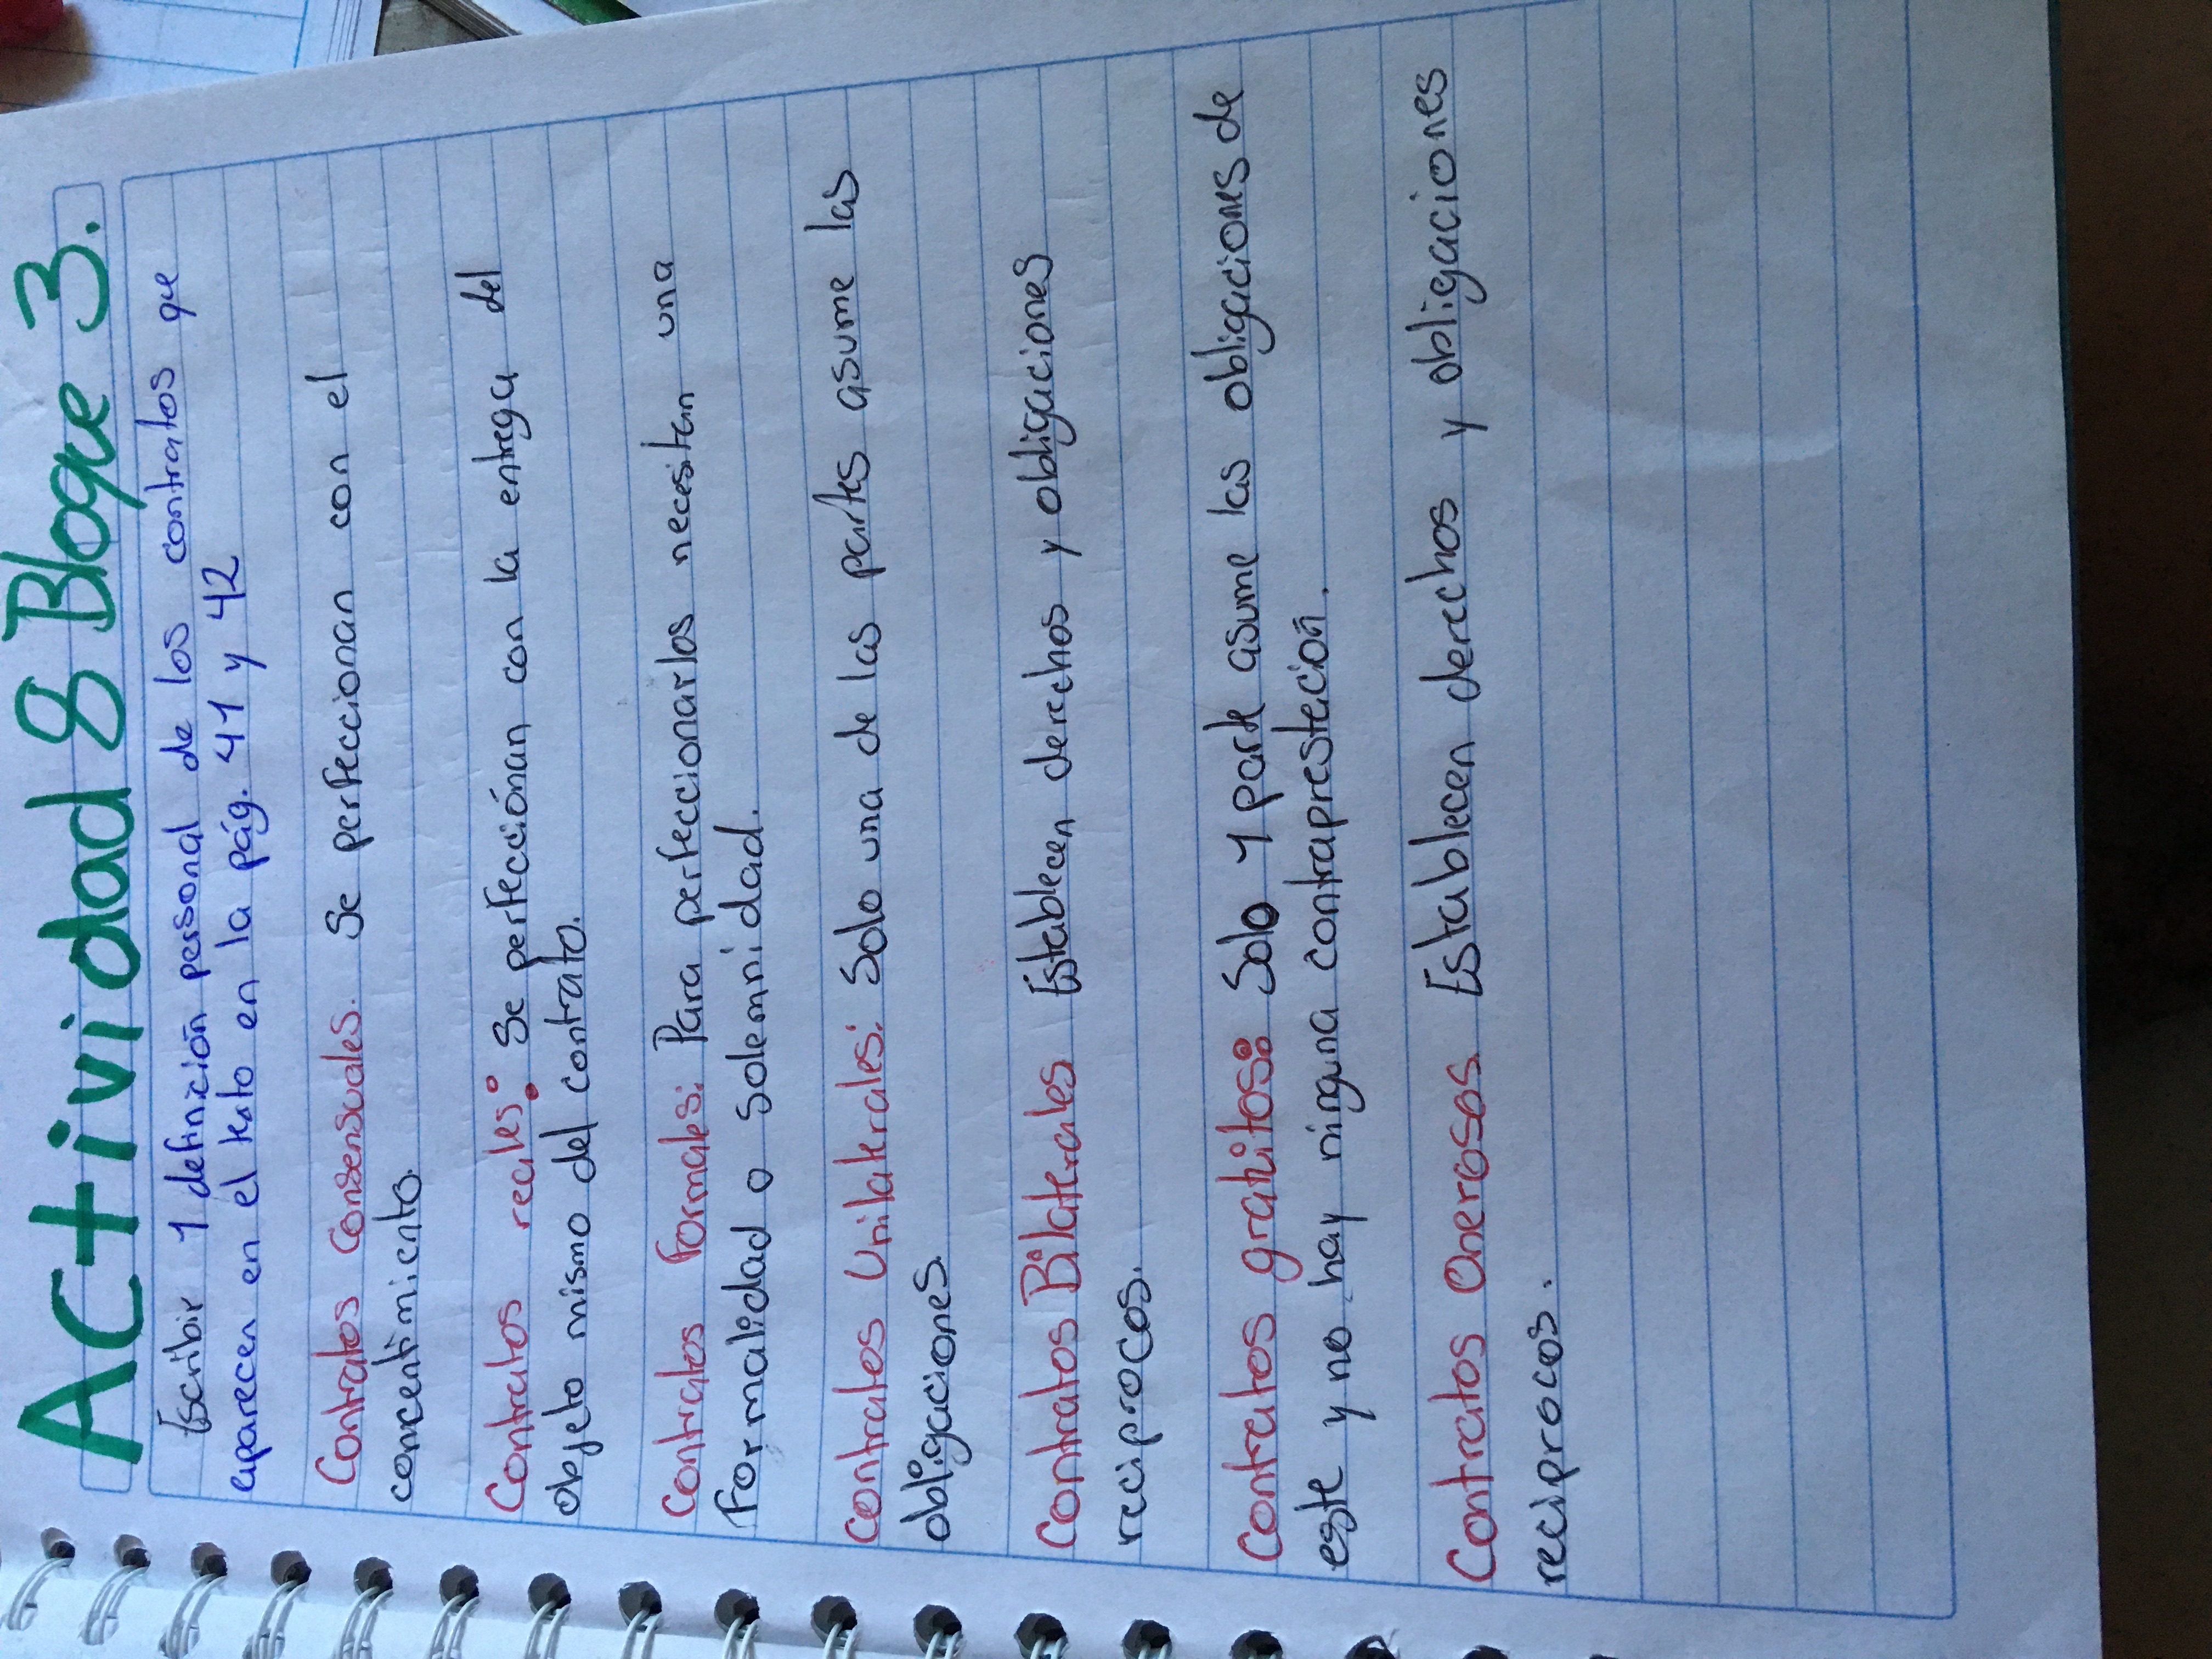 Actividad 8 Bloque 3.
Escribir 1 definición personal de los contratos que
aparecen en el texto en la pág. 41 y 42
Contratos Consensuales. Se perfeccionan con el
concentimiento.
Contratos reales: Se perfecciónan con la entrega del
objeto mismo del contrato.
Contratos Formales: Para perfeccionarlos necesitan una
Formalidad o solemnidad.
Contratos Unilaterales: Solo una de las partes asume las
obligaciones.
Contratos Bilaterales Establecen derechos y obligaciones
reciprocos.
Contratos gratuitos: Solo 1 parte asume las obligaciones de
este y no hay ninguna contraprestecion.
Contratos Onerosos. Establecen derechos y obligaciones
reciprocos.